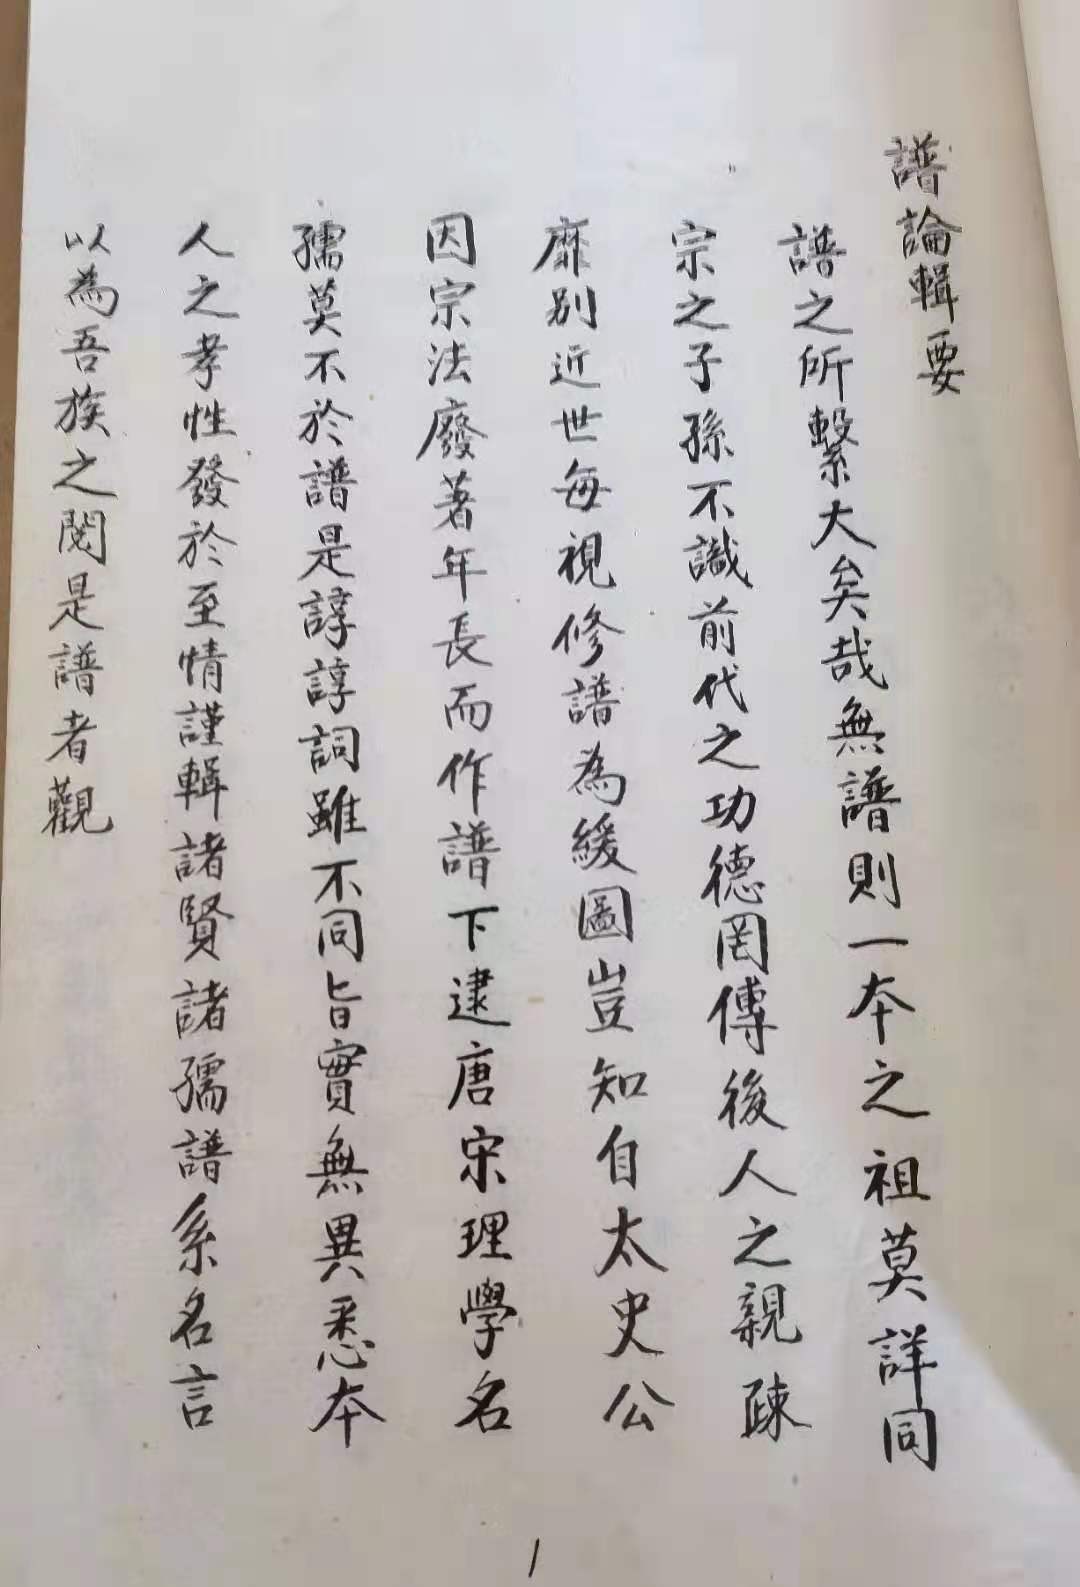 譜論輯要
譜之所繫大矣哉無譜則一本之祖莫詳同
宗之子孫不識前代之功德罔傳後人之親疎
靡別近世每視修譜為緩圖豈知自太史公
因宗法廢著年長而作譜下逮唐宋理學名
孺莫不於譜是諄諄詞雖不同旨實無異悉本
人之孝性發於至情謹輯諸賢諸孺譜系名言
以為吾族之閱是譜者觀
1